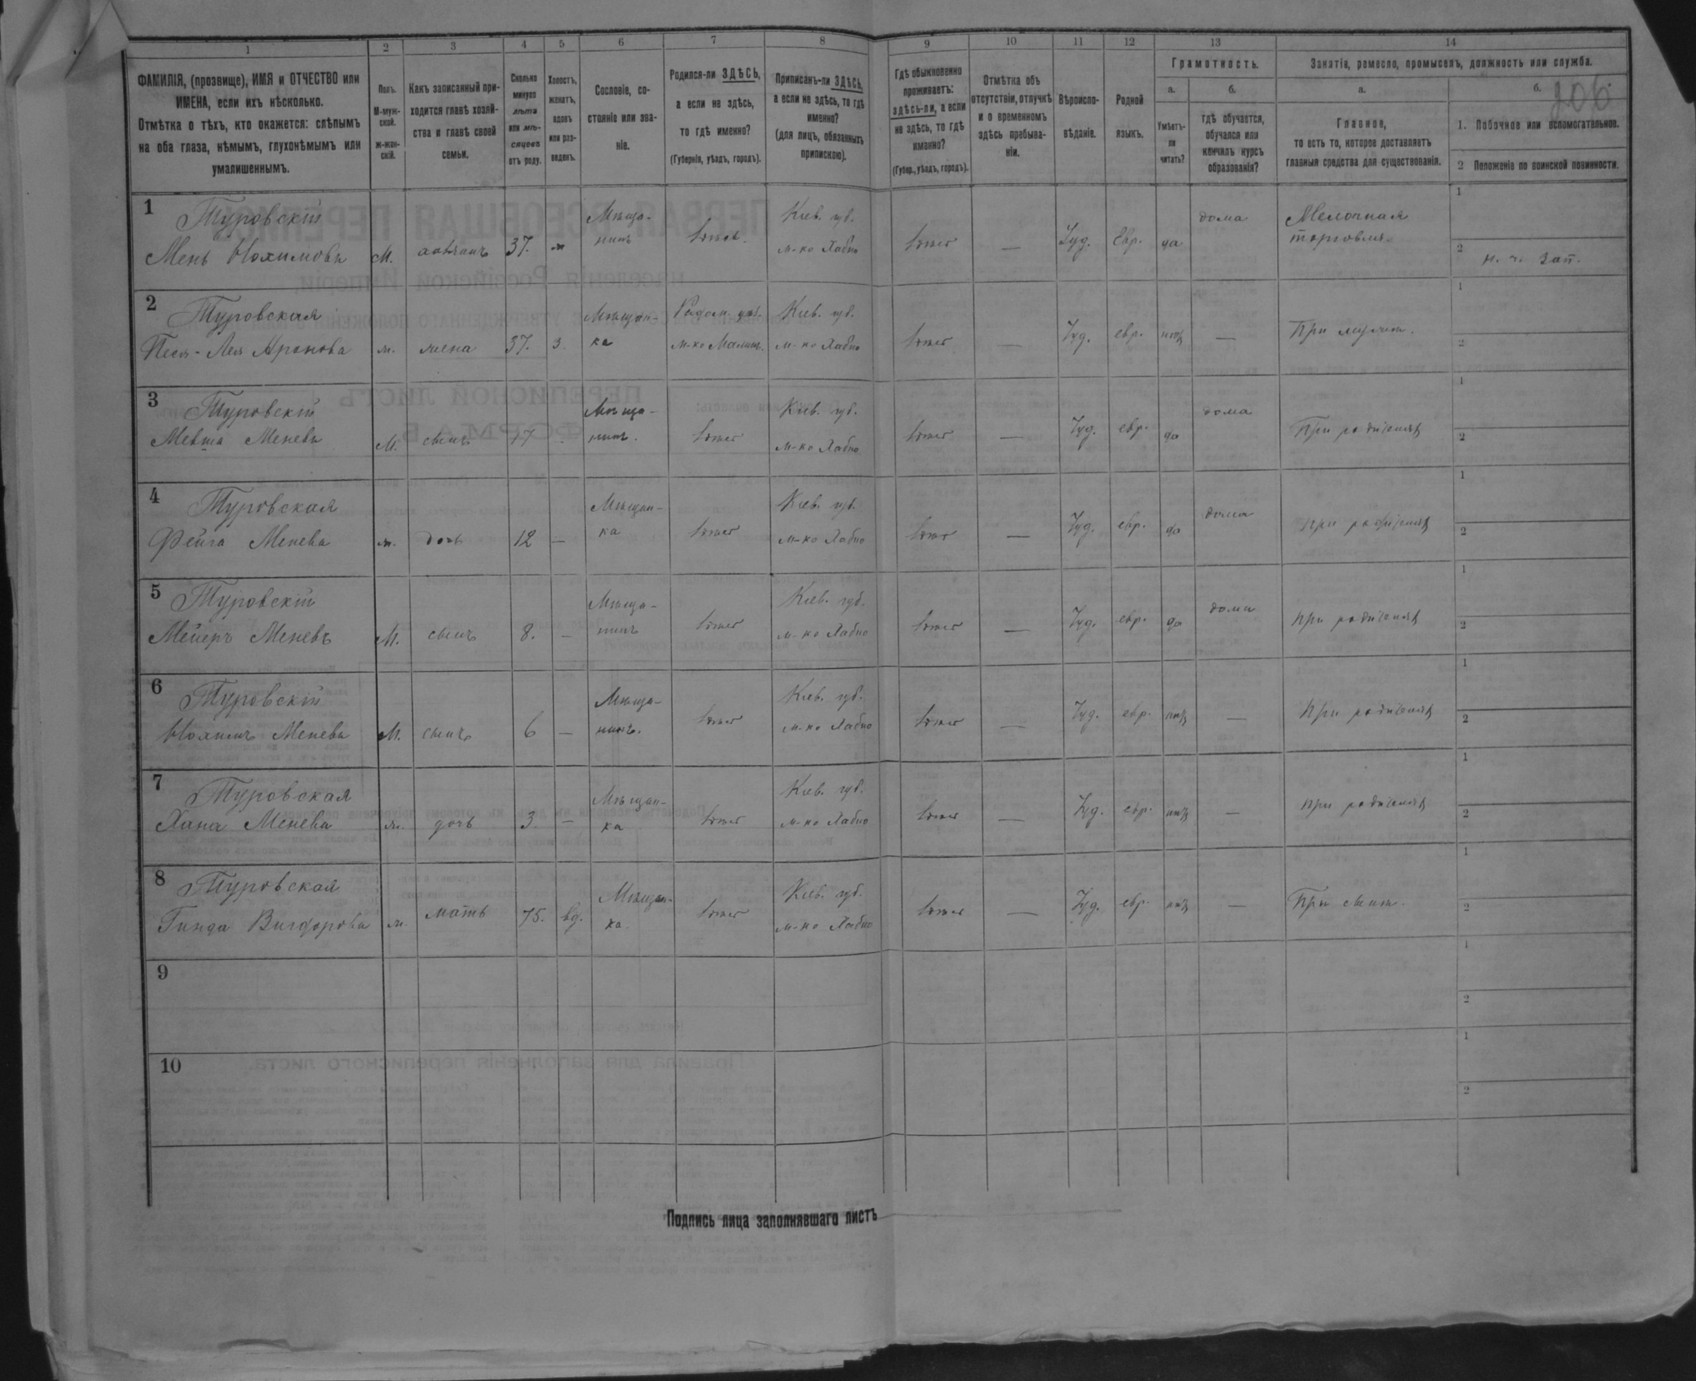 1 2 3 4 5 6 7 8 9 10 11 12 13 14
ФАМИЛІЯ, (прозвище), ИМЯ и ОТЧЕСТВО или
ИМЕНА, если ихъ нѣсколько.
Отмѣтка о тѣхъ, кто окажется: слѣпымъ
на оба глаза, нѣмымъ, глухонѣмымъ или
умалишеннымъ.
Полъ.
М-муж-
ской.
ж-жен-
скій.
Какъ записанный при-
ходится главѣ хозяй-
ства и главѣ своей
семьи.
Сколько
минуло
лѣтъ
или мѣ-
сяцевъ
отъ роду.
Холостъ,
женатъ,
вдовъ
или раз-
веденъ.
Сословіе, со-
стояніе или зва-
ніе.
Родился-ли ЗДѢСЬ,
а если не здѣсь,
то гдѣ именно?
(Губернія, уѣздъ, городъ).
Приписанъ-ли ЗДѢСЬ,
а если не здѣсь, то гдѣ
именно?
(для лицъ, обязанныхъ
припискою).
Гдѣ обыкновенно
проживаетъ:
здѣсь-ли, а если
не здѣсь, то гдѣ
именно?
(Губер., уѣздъ, городъ).
Отмѣтка объ
отсутствіи, отлучкѣ
и о временномъ
здѣсь пребыва-
ніи.
Вѣроиспо-
вѣданіе.
Родной
языкъ.
Грамотность.
а.
Умѣетъ-
ли
читать?
б.
гдѣ обучается,
обучался или
кончилъ курсъ
образованія?
Занятія, ремесло, промыселъ, должность или служба.
а.
Главное,
то есть то, которое доставляетъ
главныя средства для существованія.
б.
206
1. Побочное или вспомогательное.
2 Положеніе по воинской повинности.
1 Туровскій Мѣща- Кіев. губ. дома Мелочная 1
Мень Нохимовъ М. хозяинъ 37. ж нинъ м-ко Хабно — Іуд. Евр. да торговля. 2 н. ч. зап.
2 Туровская Мѣщан- Радом. уѣз. Кіев. губ. 1
Песя-Лея Аронова ж. жена 37. з. ка м-ко Малинъ. м-ко Хабно — Іуд. евр. нѣтъ — При мужѣ. 2
3 Туровскій Мѣща- Кіев. губ. дома 1
Меневъ М. сынъ нинъ. м-ко Хабно — Іуд. евр. да При родителяхъ 2
4 Туровская Мѣщан- Кіев. губ. дома 1
Фейга Менева ж. дочь 12 — ка м-ко Хабно — Іуд. евр. да при родителяхъ 2
5 Туровскій Мѣща- Кіев. губ. дома 1
Мейеръ Меневъ М. сынъ 8. — нинъ м-ко Хабно — Іуд. евр. да при родителяхъ 2
6 Туровскій Мѣща- Кіев. губ. 1
Нохимъ Меневъ М. сынъ 6 — нинъ. м-ко Хабно — Іуд. евр. нѣтъ — При родителяхъ 2
7 Туровская Мѣщан- Кіев. губ. 1
Хана Менева ж. дочь 3 — ка м-ко Хабно — Іуд. евр. нѣтъ — при родителяхъ 2
8 Туровская Мѣщан- Кіев. губ. 1
Гинда Вигдорова ж мать 75. вд. ка м-ко Хабно — Іуд. евр. нѣтъ — При сынѣ. 2
9 1
2
10 1
2
Подпись лица заполнявшаго листъ